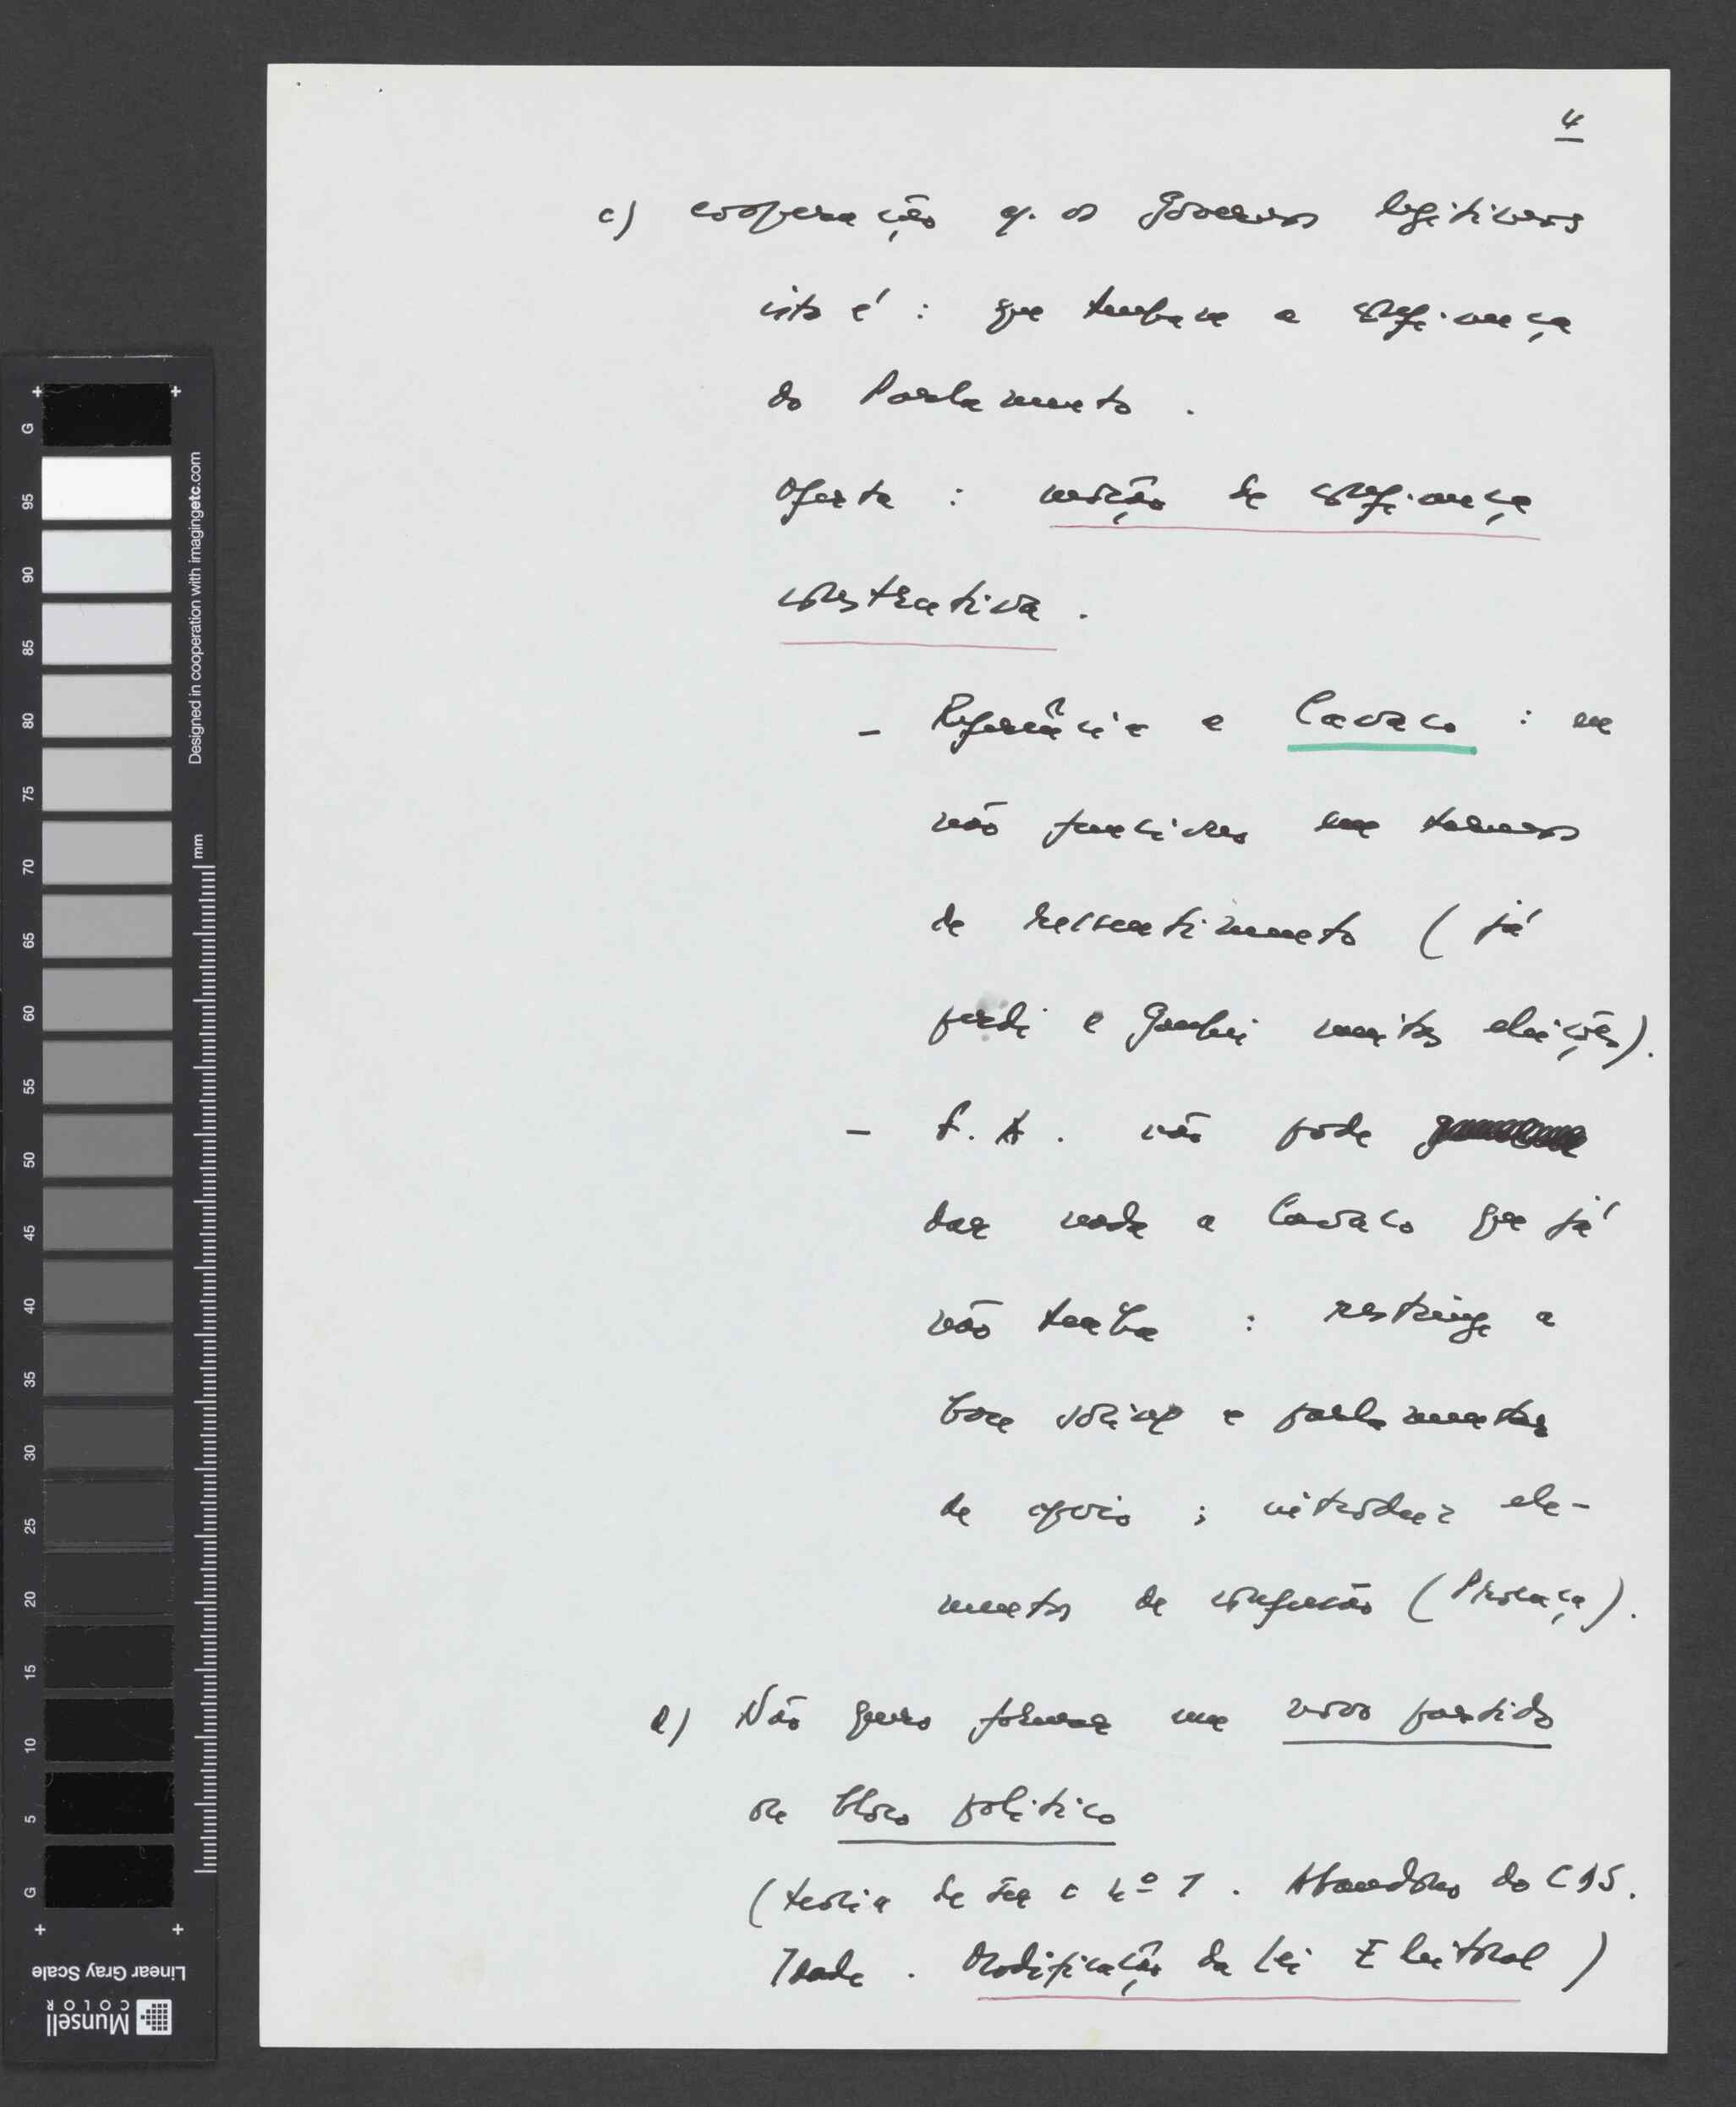 4
c) cooperação c/. os Governos legitimos
isto é : que tenham a confiança
do Parlamento .
Oferta : moção de confiança
construtiva .
– Referência a Cavaco : eu
não funciono em termos
de ressentimento ( já
perdi e Ganhei muitas eleições).
– F. A . não pode
dar nada a Cavaco que já
não tenha : restringe a
base social e parlamentar
de apoio ; introduz ele-
mentos de confusão ( ).
d) Não quero formar um novo partido
ou bloco politico
(teoria de ser o nº 1 . Abandono do CDS.
Idade . Modificação da Lei Eleitoral )
G 95 90 85 80 75 70 65 60 55 50 45 40 35 30 25 20 15 10 5 G
Designed in cooperation with imagingetc.com
mm
Munsell
COLOR
Linear Gray Scale